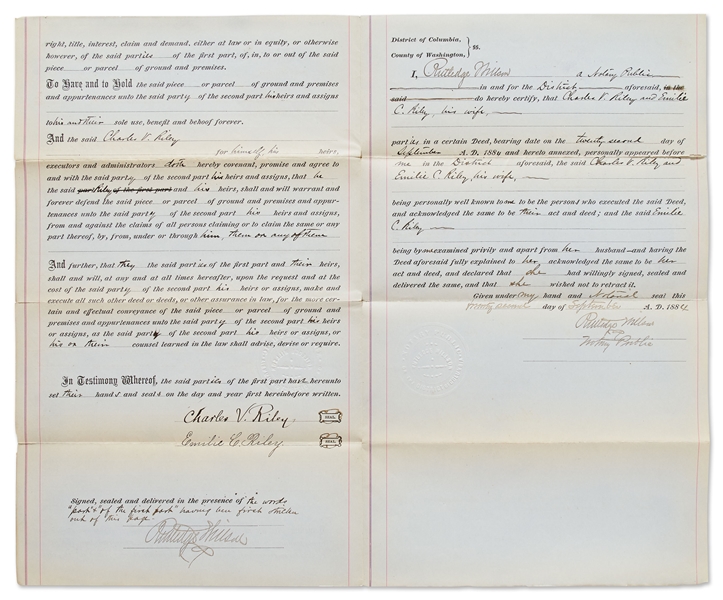 right, title, interest, claim and demand, either at law or in equity, or otherwise
however, of the said parties of the first part, of, in, to or out of the said
piece or parcel of ground and premises.
To Have and to Hold the said piece or parcel of ground and premises
and appurtenances unto the said party of the second part his heirs and assigns
to his and their sole use, benefit and behoof forever.
And the said Charles V. Riley
for himself his heirs,
executors and administrators doth hereby covenant, promise and agree to
and with the said party of the second part his heirs and assigns, that he
the said part of the first part and his heirs, shall and will warrant and
forever defend the said piece or parcel of ground and premises and appur-
tenances unto the said party of the second part his heirs and assigns,
from and against the claims of all persons claiming or to claim the same or any
part thereof, by, from, under or through him, them or any of them
And further, that they the said parties of the first part and their heirs,
shall and will, at any and at all times hereafter, upon the request and at the
cost of the said party of the second part his heirs or assigns, make and
execute all such other deed or deeds, or other assurance in law, for the more cer-
tain and effectual conveyance of the said piece or parcel of ground and
premises and appurtenances unto the said party of the second part his heirs
or assigns, as the said party of the second part his heirs or assigns, or
his or their counsel learned in the law shall advise, devise or require.
In Testimony Whereof, the said parties of the first part have hereunto
set their hands and seals on the day and year first hereinbefore written.
Charles V. Riley. SEAL
Emilie C. Riley SEAL
Signed, sealed and delivered in the presence of the words
"part of the first part" having been first stricken
out of this page
Rutledge Willson
District of Columbia,
County of Washington, } ss.
I, Rutledge Willson a Notary Public
in and for the District aforesaid, in the
said do hereby certify, that Charles V. Riley and Emilie
C. Riley, his wife,
parties in a certain Deed, bearing date on the twenty second day of
September A. D. 1884 and hereto annexed, personally appeared before
me in the District aforesaid, the said Charles V. Riley and
Emilie C. Riley, his wife,
being personally well known to me to be the persons who executed the said Deed,
and acknowledged the same to be their act and deed; and the said Emilie
C. Riley
being by me examined privily and apart from her husband and having the
Deed aforesaid fully explained to her, acknowledged the same to be her
act and deed, and declared that she had willingly signed, sealed and
delivered the same, and that she wished not to retract it.
Given under my hand and Notarial seal this
twenty second day of September A. D. 1884
Rutledge Willson
Notary Public